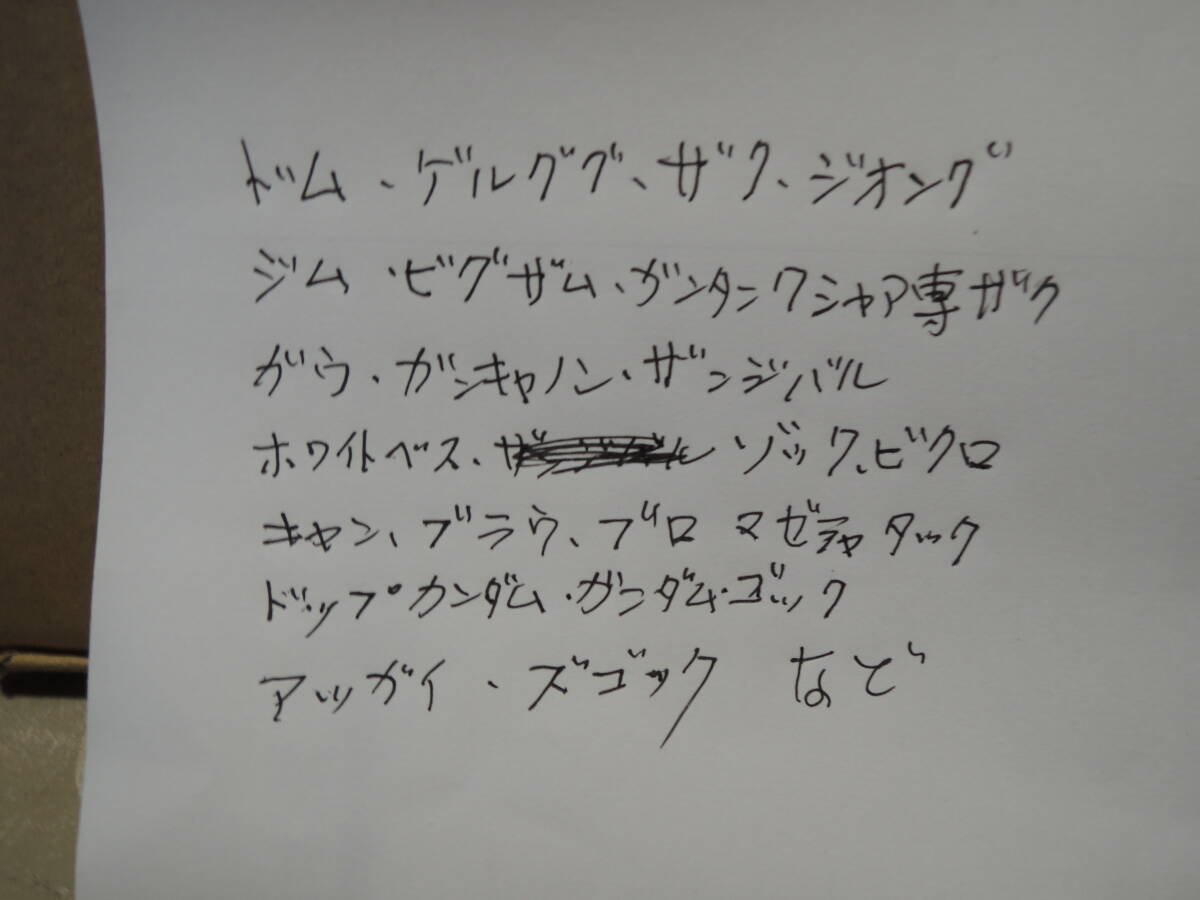 ドム、ゲルググ、ザク、ジオング
ジム・ビグザム、ガンタンクシャア専ザク
ガウ、ガンキャノン、ザンジバル
ホワイトベス、ゾック、ビクロ
キャン、ブラウ、ブロ マゼラャタック
ドップカンダム・ガンダム・ゴック
アッガイ、ズゴック など